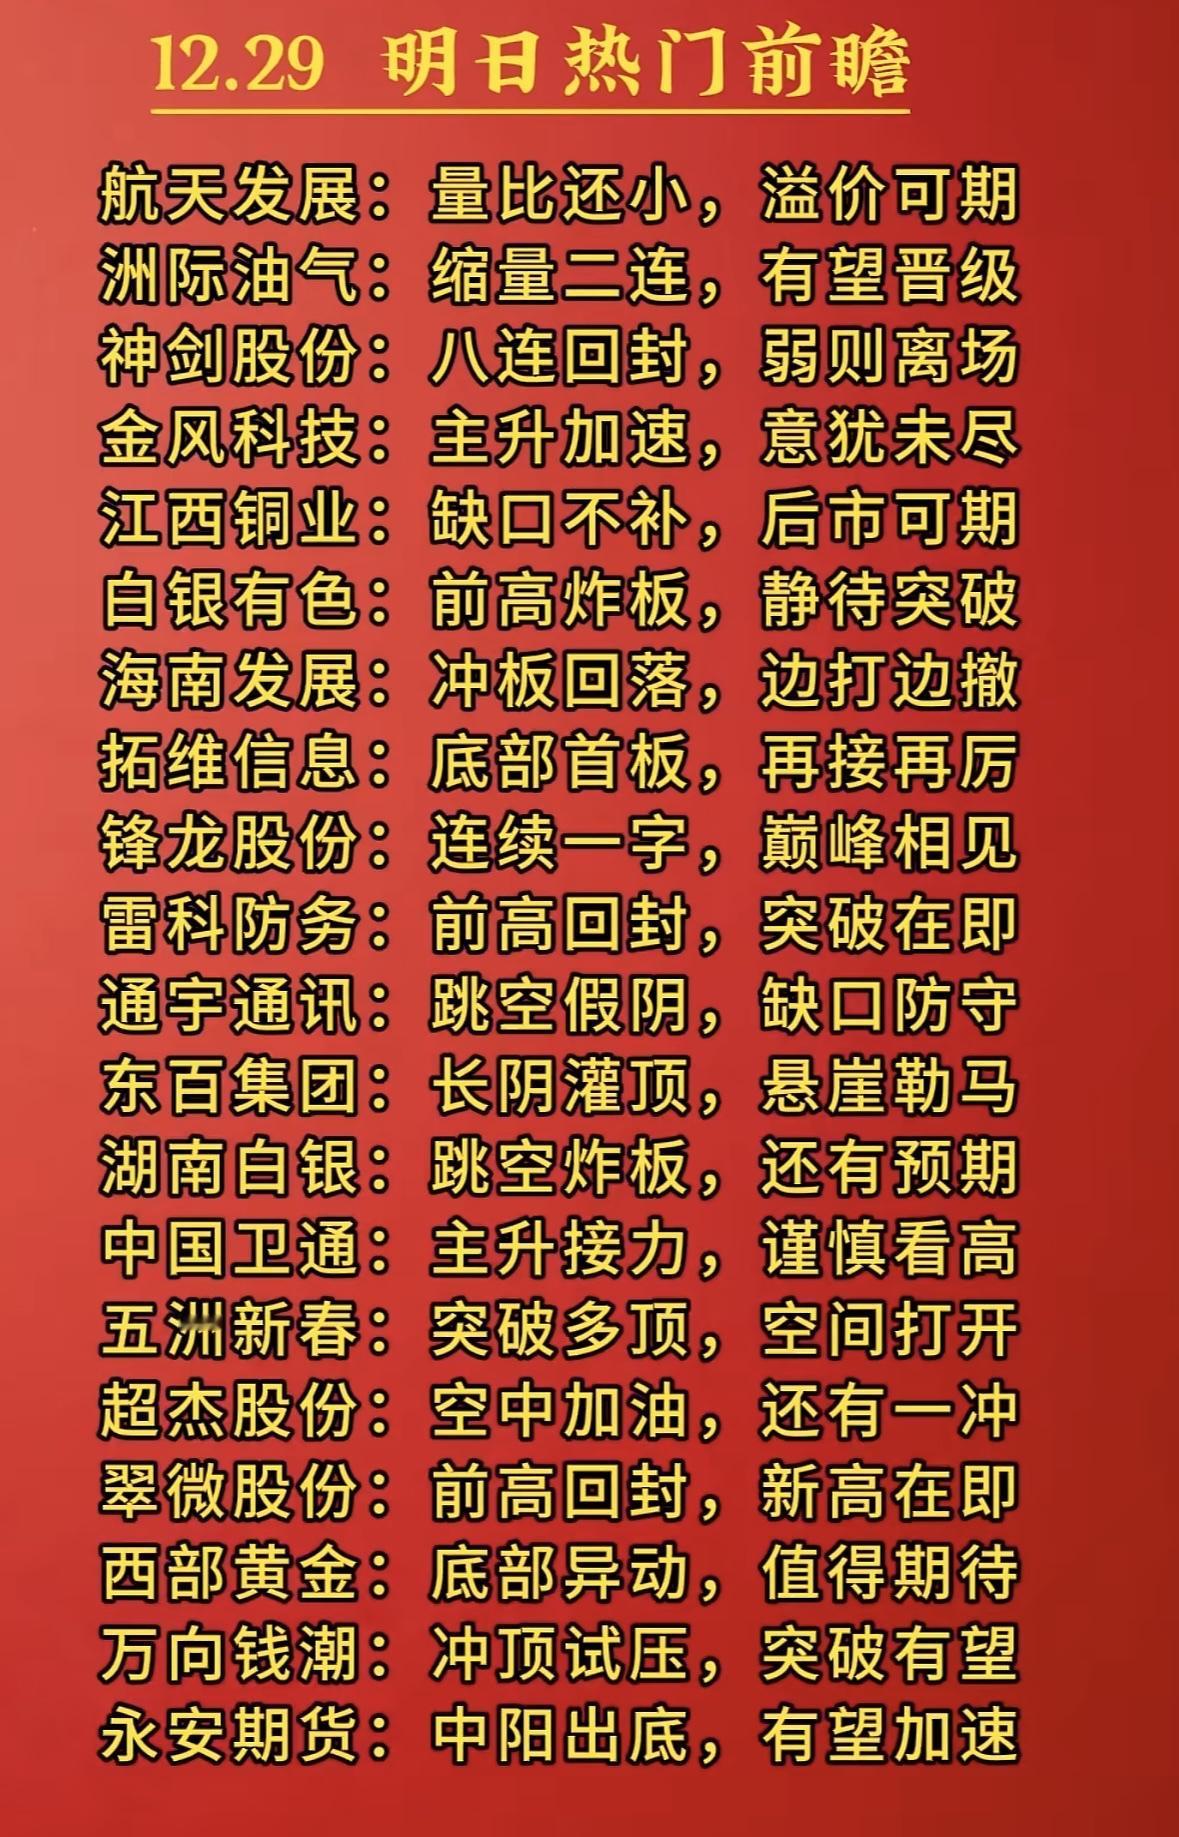 12.29 明日热门前瞻
航天发展：量比还小，溢价可期
洲际油气：缩量二连，有望晋级
神剑股份：八连回封，弱则离场
金风科技：主升加速，意犹未尽
江西铜业：缺口不补，后市可期
白银有色：前高炸板，静待突破
海南发展：冲板回落，边打边撤
拓维信息：底部首板，再接再厉
锋龙股份：连续一字，巅峰相见
雷科防务：前高回封，突破在即
通宇通讯：跳空假阴，缺口防守
东百集团：长阴灌顶，悬崖勒马
湖南白银：跳空炸板，还有预期
中国卫通：主升接力，谨慎看高
五洲新春：突破多顶，空间打开
超杰股份：空中加油，还有一冲
翠微股份：前高回封，新高在即
西部黄金：底部异动，值得期待
万向钱潮：冲顶试压，突破有望
永安期货：中阳出底，有望加速